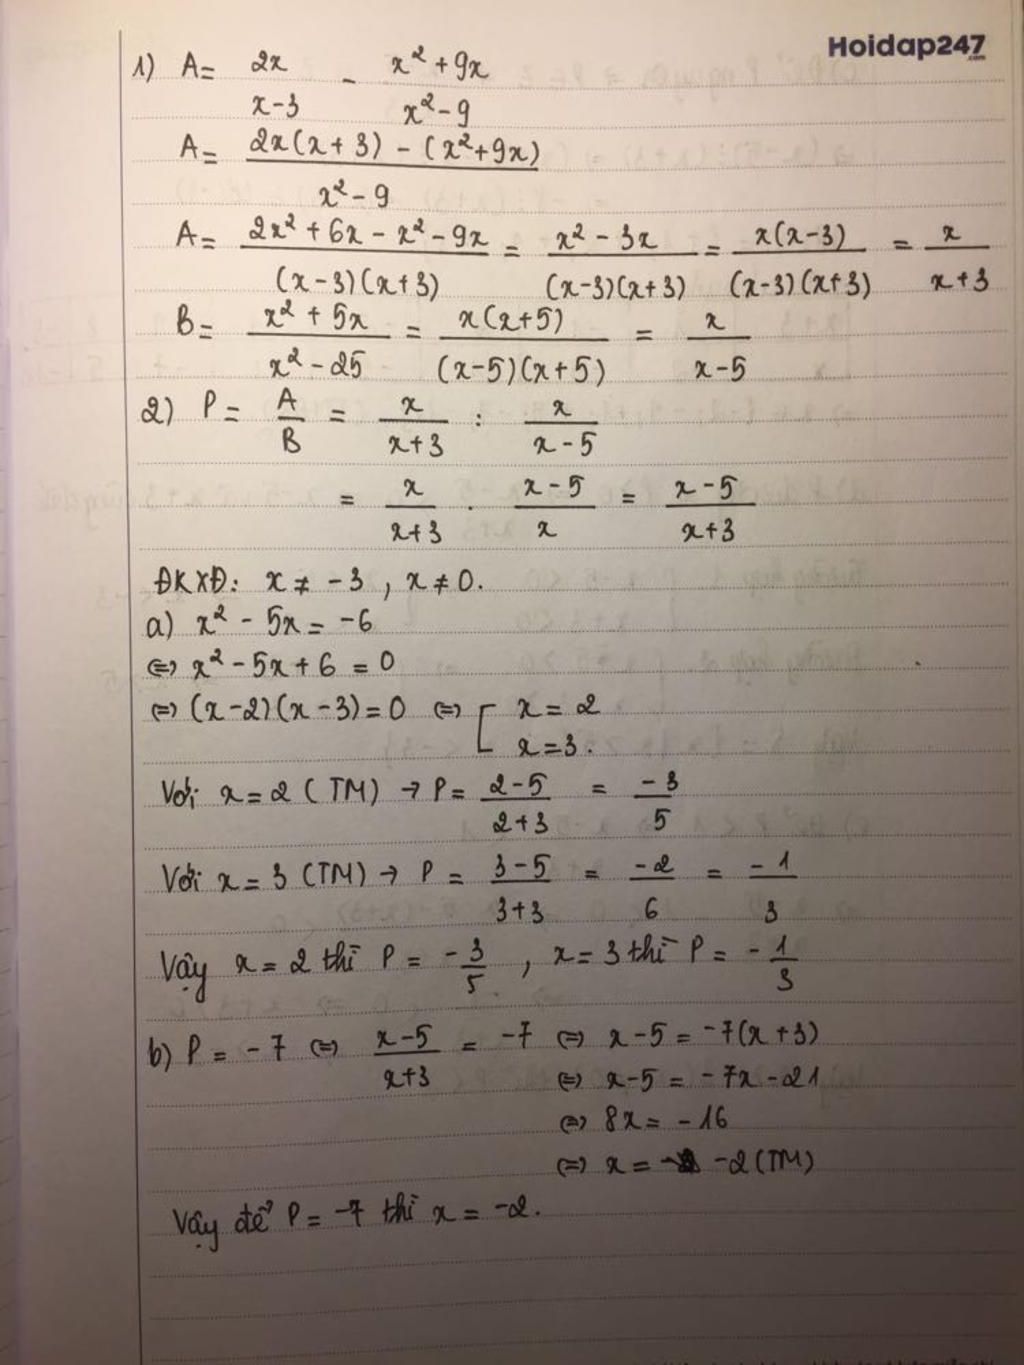 Hoidap247
.com
1) A = 2x/(x-3) - (x² + 9x)/(x² - 9)
A = (2x(x+3) - (x²+9x))/(x² - 9)
A = (2x² + 6x - x² - 9x)/((x-3)(x+3)) = (x² - 3x)/((x-3)(x+3)) = (x(x-3))/((x-3)(x+3)) = x/(x+3)
B = (x² + 5x)/(x² - 25) = (x(x+5))/((x-5)(x+5)) = x/(x-5)
2) P = A/B = x/(x+3) : x/(x-5)
= x/(x+3) . (x-5)/x = (x-5)/(x+3)
ĐKXĐ: x ≠ -3 , x ≠ 0.
a) x² - 5x = -6
⇔ x² - 5x + 6 = 0
⇔ (x-2)(x-3) = 0 ⇔ [ x = 2
x = 3.
Với x = 2 (TM) → P = (2-5)/(2+3) = -3/5
Với x = 3 (TM) → P = (3-5)/(3+3) = -2/6 = -1/3
Vậy x = 2 thì P = -3/5 , x = 3 thì P = -1/3
b) P = -7 ⇔ (x-5)/(x+3) = -7 ⇔ x-5 = -7(x+3)
⇔ x-5 = -7x-21
⇔ 8x = -16
⇔ x = -2 (TM)
Vậy để P = -7 thì x = -2.